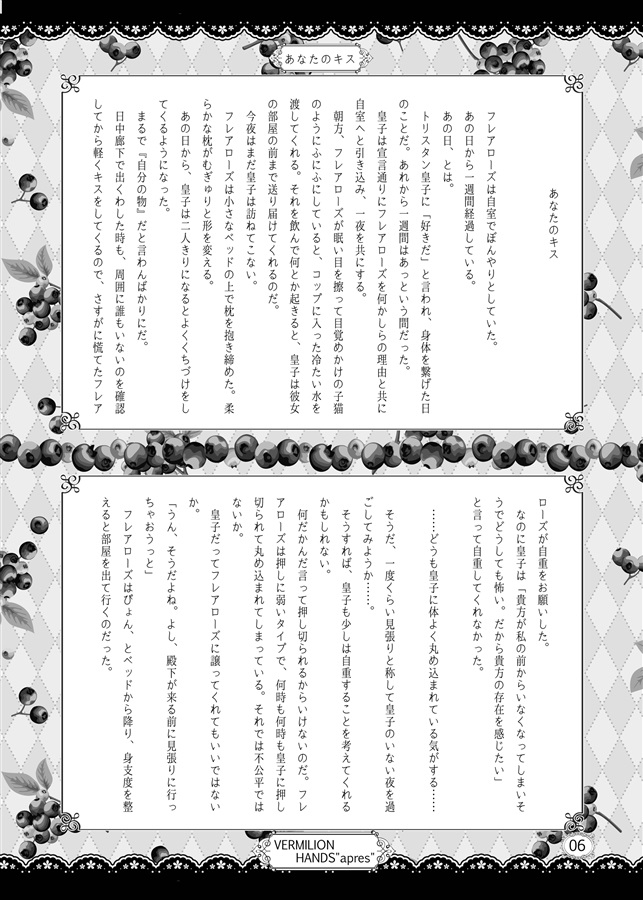 あなたのキス
あなたのキス
フレアローズは自室でぼんやりとしていた。
あの日から一週間経過している。
あの日、とは。
トリスタン皇子に「好きだ」と言われ、身体を繋げた日
のことだ。あれから一週間はあっという間だった。
皇子は宣言通りにフレアローズを何かしらの理由と共に
自室へと引き込み、一夜を共にする。
朝方、フレアローズが眠い目を擦って目覚めかけの子猫
のようにふにふにしていると、コップに入った冷たい水を
渡してくれる。それを飲んで何とか起きると、皇子は彼女
の部屋の前まで送り届けてくれるのだ。
今夜はまだ皇子は訪ねてこない。
フレアローズは小さなベッドの上で枕を抱き締めた。柔
らかな枕がむぎゅりと形を変える。
あの日から、皇子は二人きりになるとよくくちづけをし
てくるようになった。
まるで『自分の物』だと言わんばかりにだ。
日中廊下で出くわした時も、周囲に誰もいないのを確認
してから軽くキスをしてくるので、さすがに慌てたフレア
ローズが自重をお願いした。
なのに皇子は「貴方が私の前からいなくなってしまいそ
うでどうしても怖い。だから貴方の存在を感じたい」
と言って自重してくれなかった。
……どうも皇子に体よく丸め込まれている気がする……
そうだ、一度くらい見張りと称して皇子のいない夜を過
ごしてみようか……。
そうすれば、皇子も少しは自重することを考えてくれる
かもしれない。
何だかんだ言って押し切られるからいけないのだ。フレ
アローズは押しに弱いタイプで、何時も何時も皇子に押し
切られて丸め込まれてしまっている。それでは不公平では
ないか。
皇子だってフレアローズに譲ってくれてもいいではない
か。
「うん、そうだよね。よし、殿下が来る前に見張りに行っ
ちゃおうっと」
フレアローズはぴょん、とベッドから降り、身支度を整
えると部屋を出て行くのだった。
VERMILION
HANDS"apres"
06